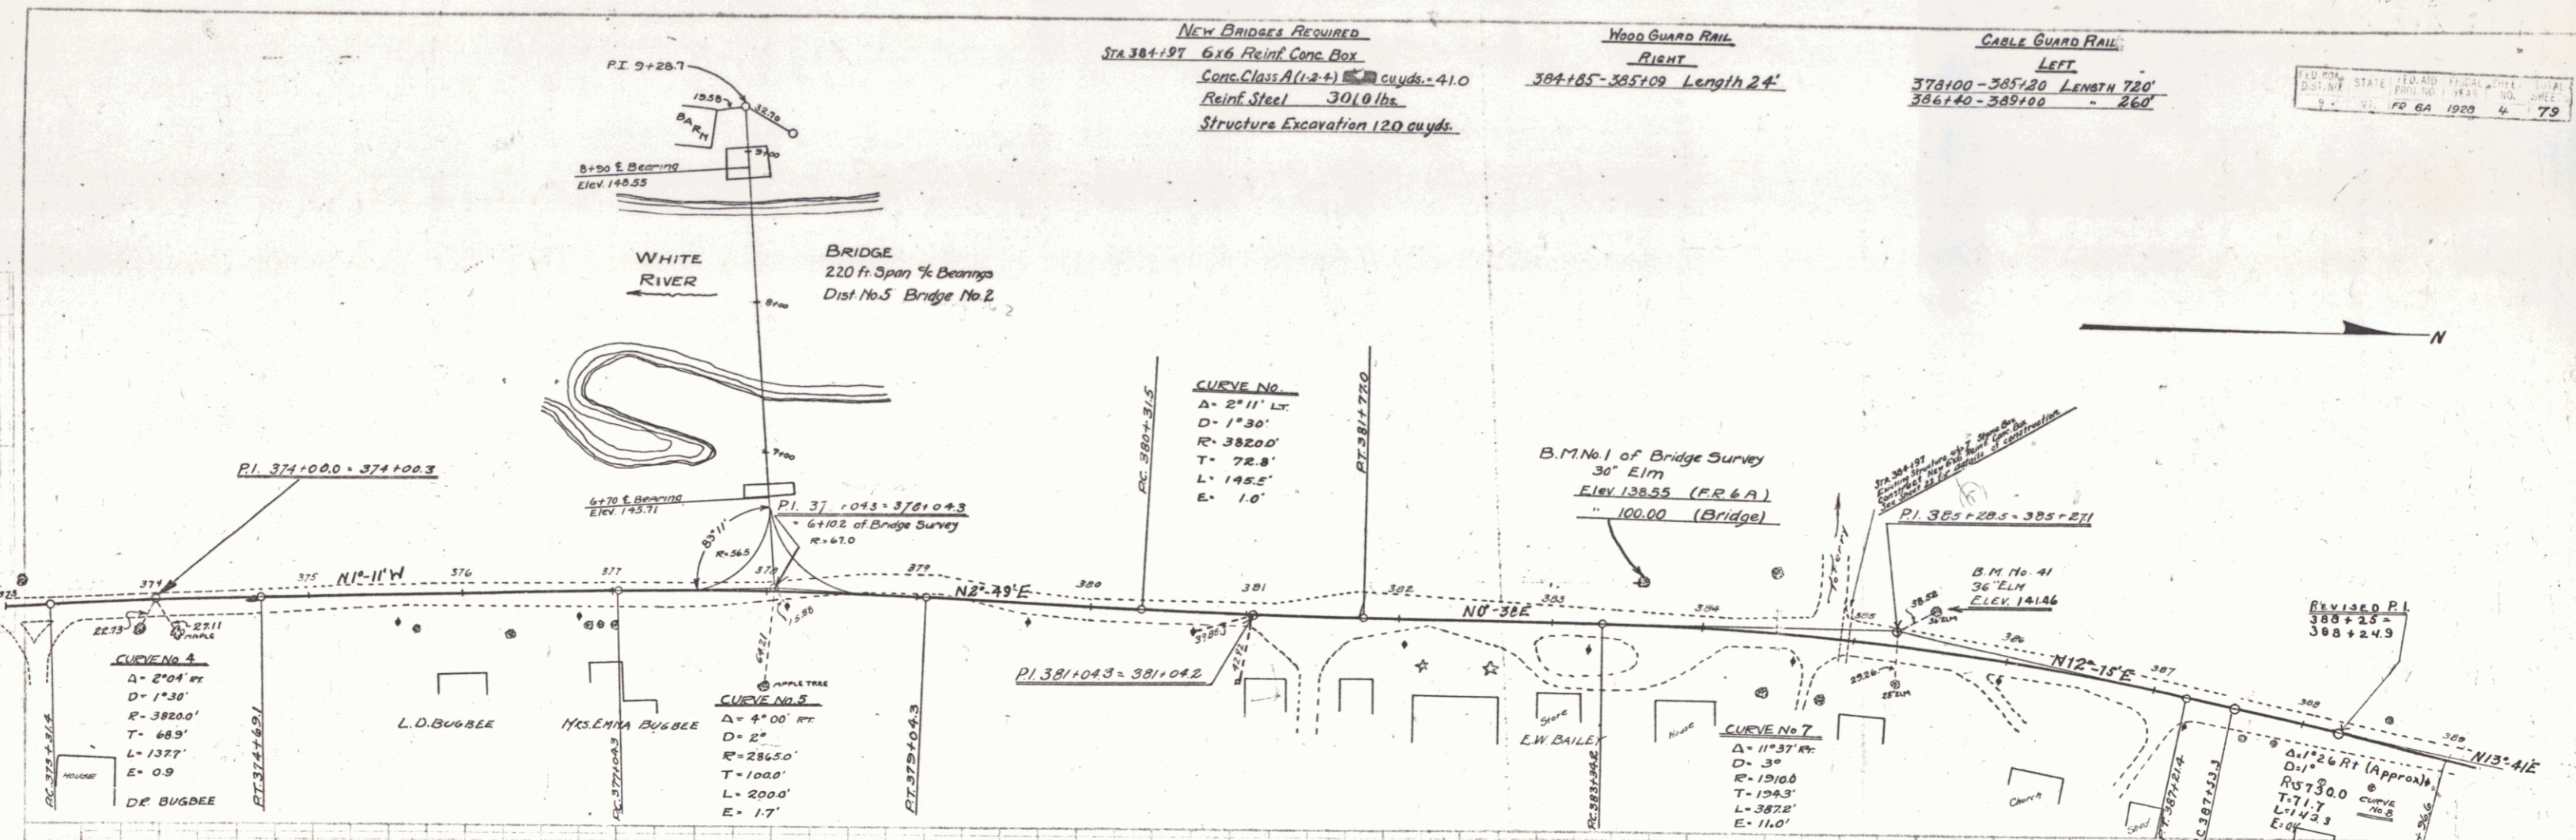 NEW BRIDGES REQUIRED
STA. 384+97 6x6 Reinf. Conc. Box
Conc. Class A (1-2-4) cu yds. = 41.0
Reinf. Steel 3010 lbs.
Structure Excavation 120 cu yds.
WOOD GUARD RAIL
RIGHT
384+85-385+09 Length 24'
CABLE GUARD RAIL
LEFT
378+00-385+20 LENGTH 720'
386+40-389+00 " 260'
FED. ROAD DIST. NO. STATE FED. AID PROJ. NO. FISCAL YEAR SHEET NO. TOTAL SHEETS
VT. FR 6A 1928 4 79
P.I. 9+28.7
19.58
32.70
BARN
9+00
8+90 ℄ Bearing
Elev. 148.55
WHITE
RIVER
BRIDGE
220 ft. Span c/c Bearings
Dist. No. 5 Bridge No. 2
2
8+00
N
7+00
6+70 ℄ Bearing
Elev. 145.71
P.I. 37 +04.3 = 378+04.3
= 6+10.2 of Bridge Survey
R=67.0
83°11'
R=56.5
P.I. 374+00.0 = 374+00.3
P.C. 380+31.5
CURVE NO.
Δ= 2°11' LT.
D= 1°30'
R= 3820.0'
T= 72.8'
L= 145.5'
E= 1.0'
P.T. 381+77.0
B.M. No. 1 of Bridge Survey
30" Elm
Elev 138.55 (F.R. 6 A)
" 100.00 (Bridge)
STA. 384+97
Existing Structure Stone Box
Construct New 6x6 Reinf. Conc. Box
See Sheet 22 for details of construction
P.I. 385+28.5 = 385+27.1
B.M. No. 41
36" ELM
ELEV. 141.46
38.52
36" ELM
REVISED P.I.
388+25 =
388+24.9
373
374
375
N1°-11'W
376
377
378
379
N2°-49'E
380
381
382
N0°-38E
383
384
385
386
N12°-15'E
387
388
389
N13°-41E
22.73
27.11
MAPLE
15.88
64.21
APPLE TREE
29.26
28" ELM
P.I. 381+04.3 = 381+04.2
CURVE No. 4
Δ= 2°04' RT
D= 1°30'
R= 3820.0'
T= 68.9'
L= 137.7'
E= 0.9
HOUSE
DR. BUGBEE
P.C. 373+31.4
P.T. 374+69.1
L.D. BUGBEE
MRS. EMMA BUGBEE
P.C. 377+04.3
CURVE No. 5
Δ= 4°00' RT.
D= 2°
R= 2865.0'
T= 100.0'
L= 200.0'
E= 1.7'
P.T. 379+04.3
Store
E.W. BAILEY
P.C. 383+34.2
House
CURVE No 7
Δ= 11°37' RT.
D= 3°
R= 1910.0
T= 194.3'
L= 387.2'
E= 11.0'
Church
Shed
P.T. 387+21.4
C 387+53.3
Δ=1°26 Rt (Approx)
D=1°
R=5730.0
T=71.7
L=142.3
E=0.4
CURVE
No 8